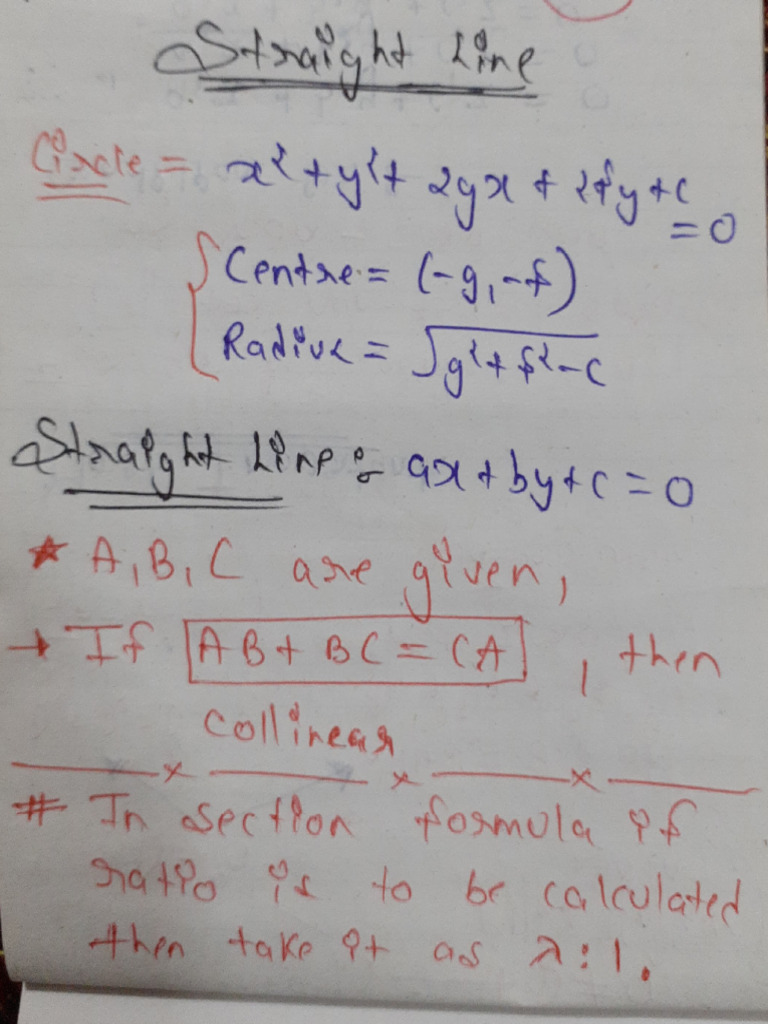 Straight Line
Circle = x² + y² + 2gx + 2fy + c
= 0
Centre = (-g, -f)
Radius = √g² + f² - c
Straight Line :- ax + by + c = 0
★ A, B, C are given,
→ If AB + BC = CA, then
collinear
# In section formula if
ratio is to be calculated
then take it as λ : 1.